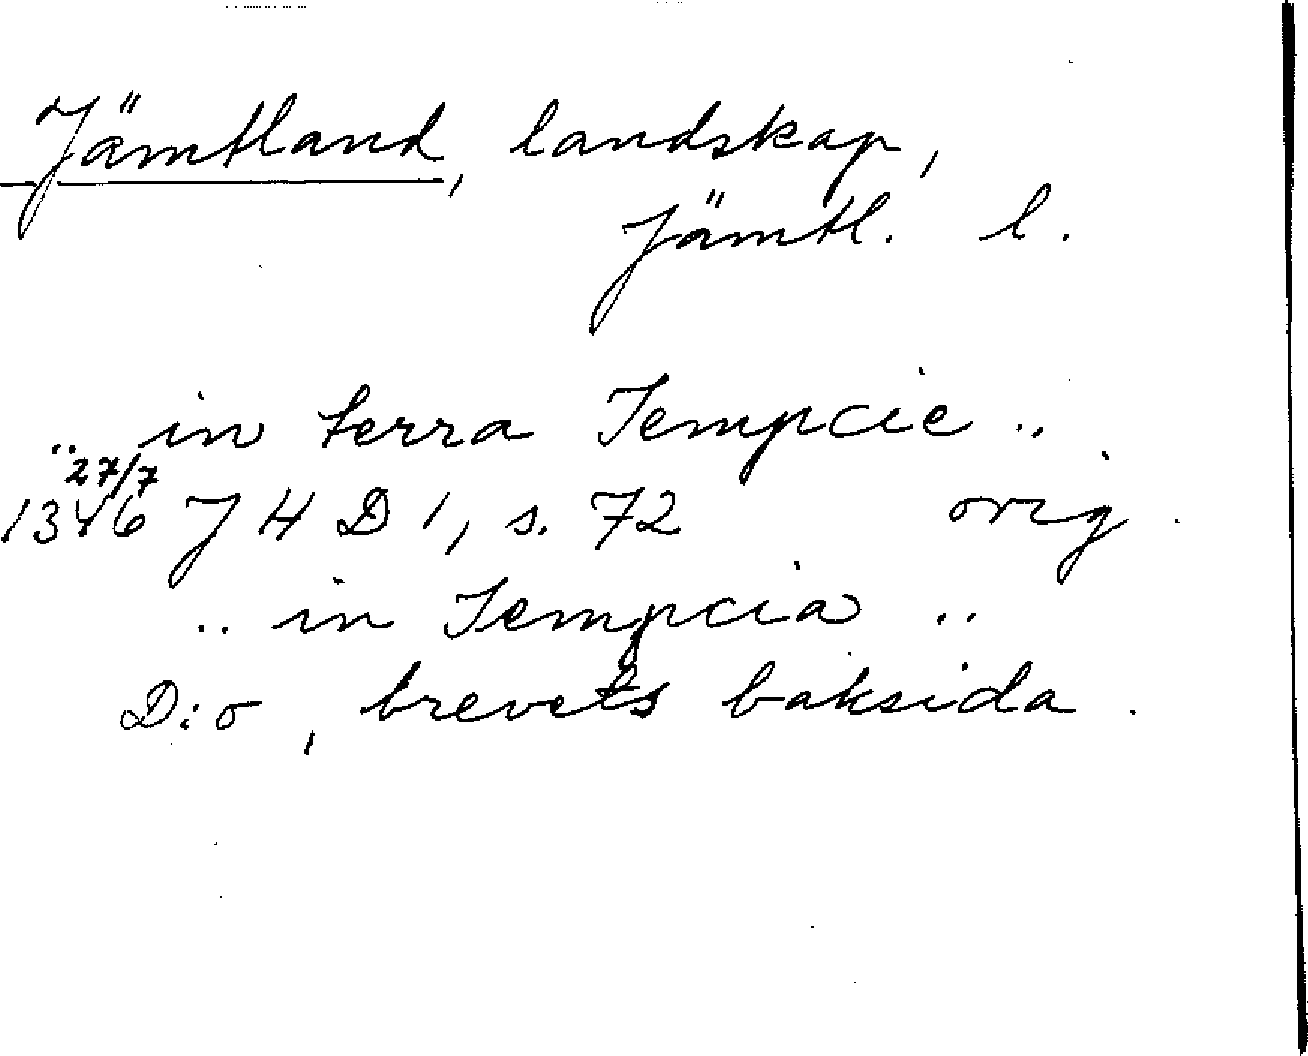 Jämtland, landskap,
Jämtl. l.
.. in terra Iempcie ..
27/7
1346 J H D 1, s. 72 orig.
.. in Iempcia ..
D:o, brevets baksida.